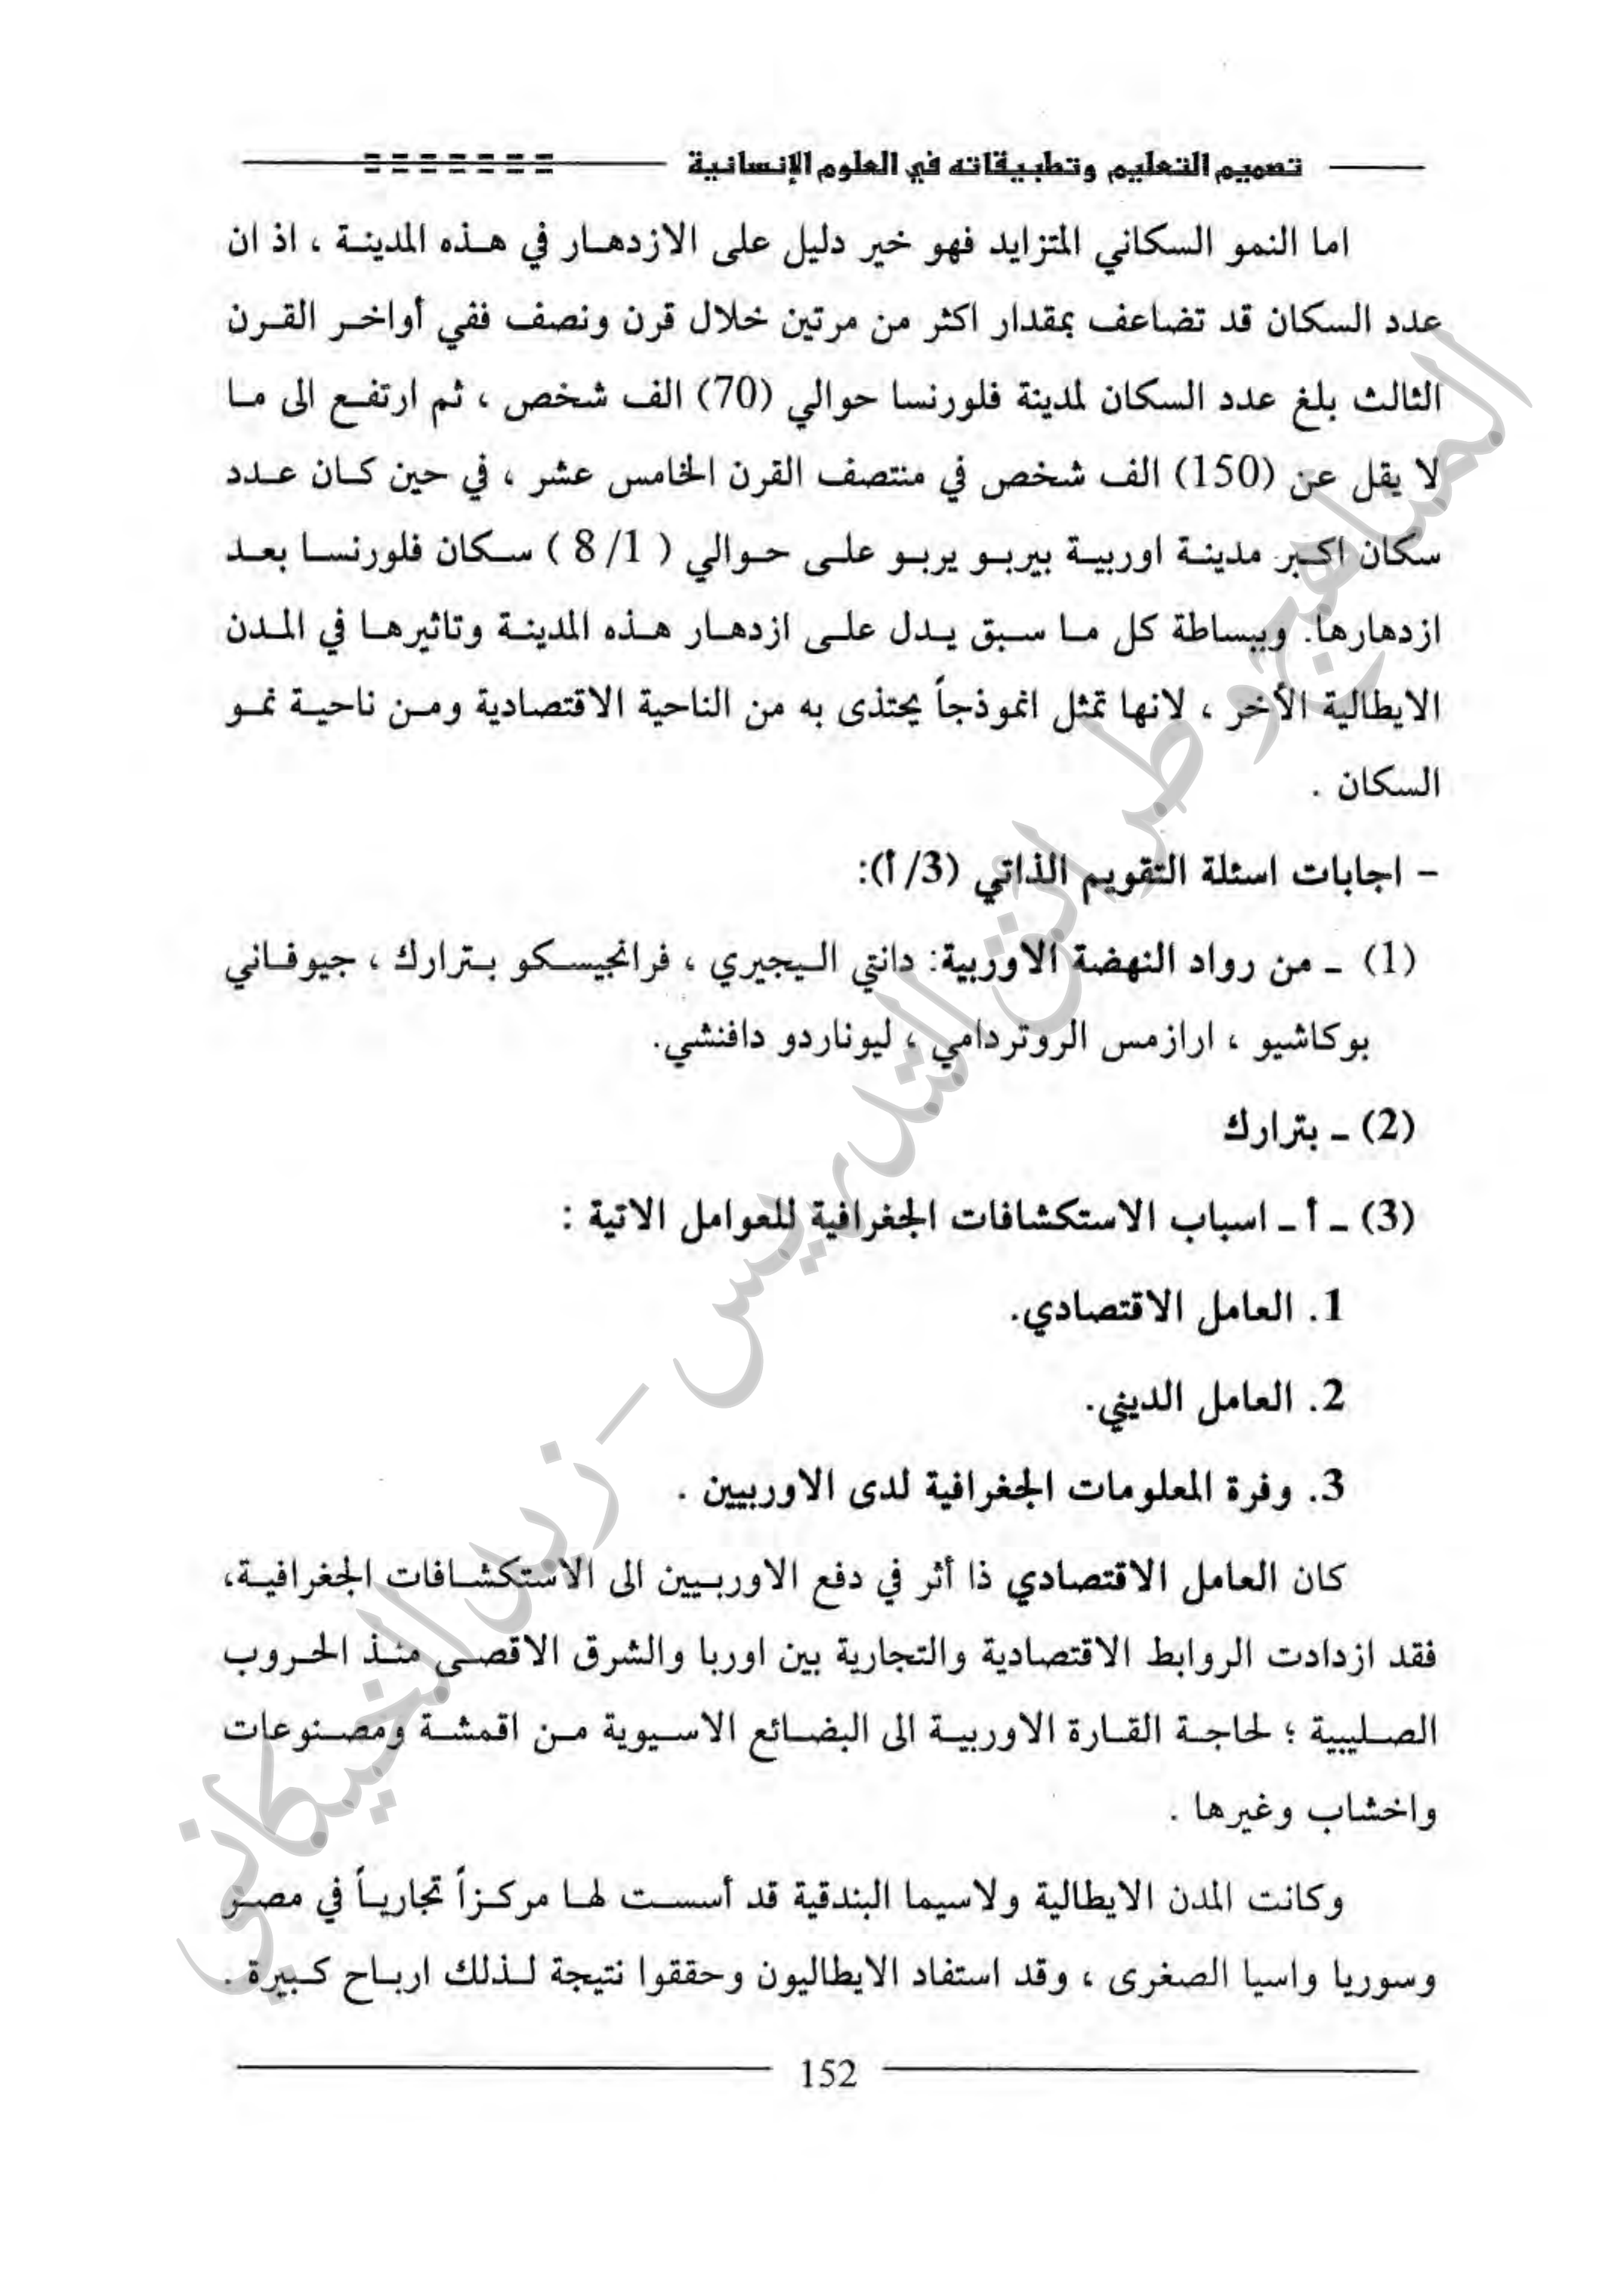 تصميم التعليم وتطبيقاته في العلوم الإنسانية
اما النمو السكاني المتزايد فهو خير دليل على الازدهار في هذه المدينة ، اذ ان
عدد السكان قد تضاعف بمقدار اكثر من مرتين خلال قرن ونصف ففي أواخر القرن
الثالث بلغ عدد السكان لمدينة فلورنسا حوالي (70) الف شخص ، ثم ارتفع الى ما
لا يقل عن (150) الف شخص في منتصف القرن الخامس عشر ، في حين كان عدد
سكان اكبر مدينة اوربية بيربو يربو على حوالي ( 8/1 ) سكان فلورنسا بعد
ازدهارها. وببساطة كل ما سبق يدل على ازدهار هذه المدينة وتاثيرها في المدن
الايطالية الأخر ، لانها تمثل انموذجاً يحتذى به من الناحية الاقتصادية ومن ناحية نمو
السكان .
- اجابات اسئلة التقويم الذاتي (3/أ):
(1) ـ من رواد النهضة الاوربية: دانتي اليجيري ، فرانجيسكو بترارك ، جيوفاني
بوكاشيو ، ارازمس الروتردامي ، ليوناردو دافنشي.
(2) ـ بترارك
(3) ـ أ ـ اسباب الاستكشافات الجغرافية للعوامل الاتية :
1. العامل الاقتصادي.
2. العامل الديني.
3. وفرة المعلومات الجغرافية لدى الاوربيين .
كان العامل الاقتصادي ذا أثر في دفع الاوربيين الى الاستكشافات الجغرافية،
فقد ازدادت الروابط الاقتصادية والتجارية بين اوربا والشرق الاقصى منذ الحروب
الصليبية ؛ لحاجة القارة الاوربية الى البضائع الاسيوية من اقمشة ومصنوعات
واخشاب وغيرها .
وكانت المدن الايطالية ولاسيما البندقية قد أسست لها مركزاً تجارياً في مصر
وسوريا واسيا الصغرى ، وقد استفاد الايطاليون وحققوا نتيجة لذلك ارباح كبيرة .
152
المناهج وطرائق التدريس - زيد الخيكاني